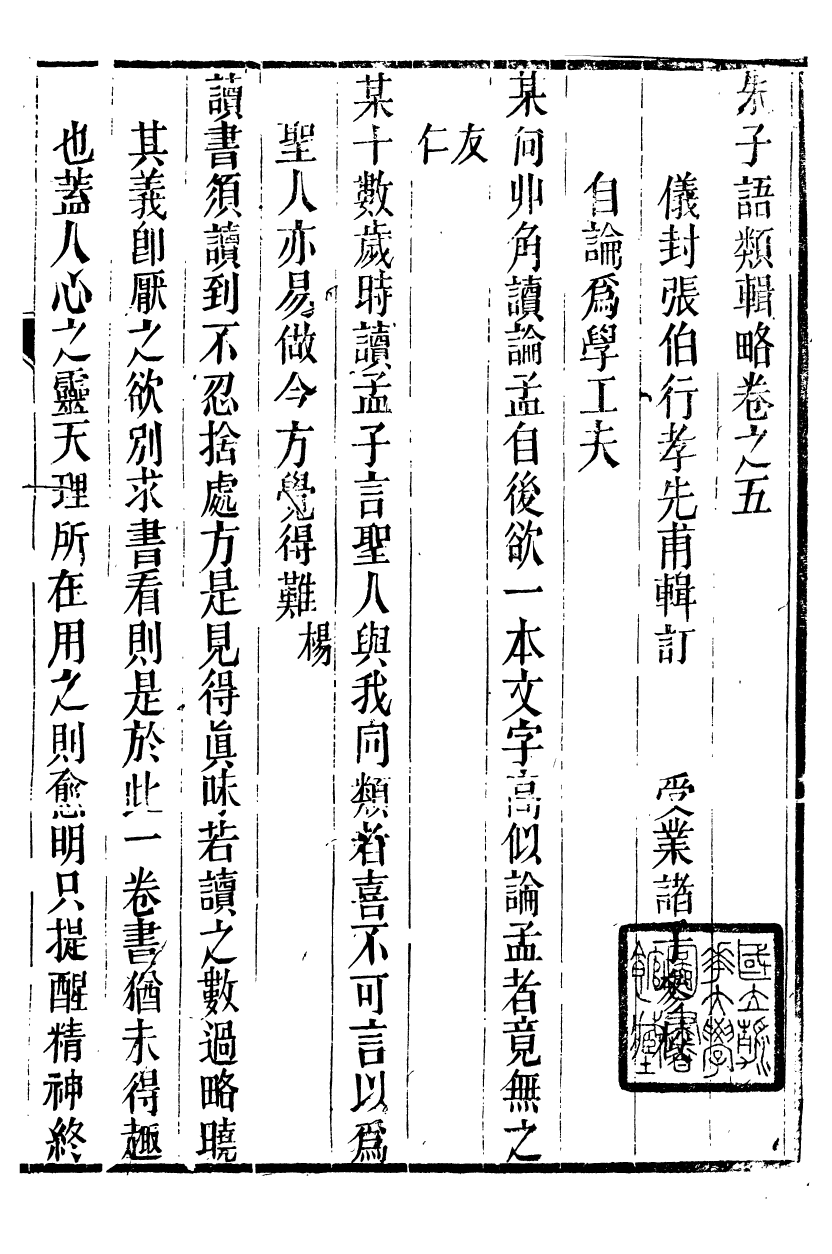 朱子語類輯略卷之五
儀封張伯行孝先甫輯訂　受業諸子參校
自論為學工夫
某向丱角讀論孟自後欲一本文字高似論孟者竟無之
友仁
某十數歲時讀孟子言聖人與我同類者喜不可言以為
聖人亦易做今方覺得難楊
讀書須讀到不忍捨處方是見得眞味若讀之數過略曉
其義卽厭之欲別求書看則是於此一卷書猶未得趣
也蓋人心之靈天理所在用之則愈明只提醒精神終
國立
大學